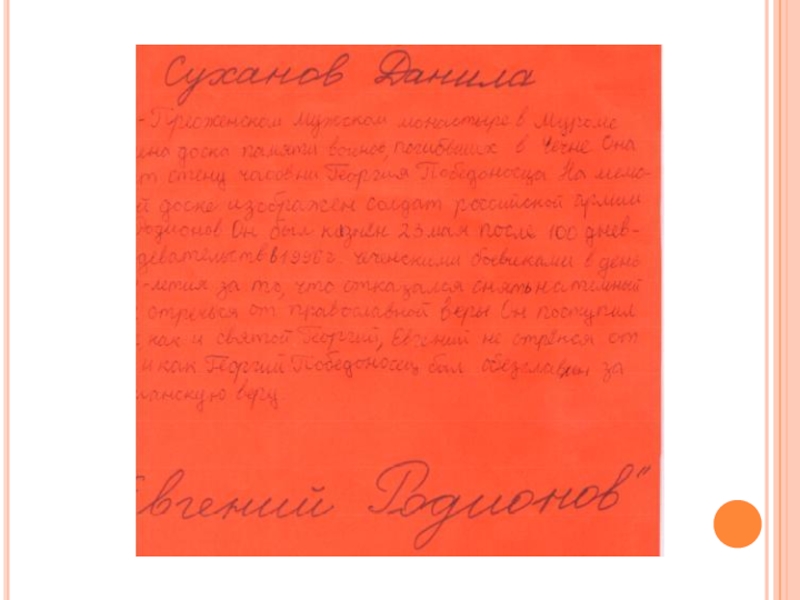 Суханов Данила
- Преоженском мужском монастыре в Муроме
ена доска памяти воинов, погибших в Чечне Она
т стену часовни Георгия Победоносца На мемо-
й доске изображён солдат российской армии
Родионов Он был казнён 23 мая после 100 днев-
девательств в 1996 г. чеченскими боевиками в день
-летия за то, что отказался снять нательный
отречься от православной веры Он поступил
, как и святой Георгий, Евгений не отрёкся от
и как Георгий Победоносец был обезглавлен за
ианскую веру
Евгений Родионов"